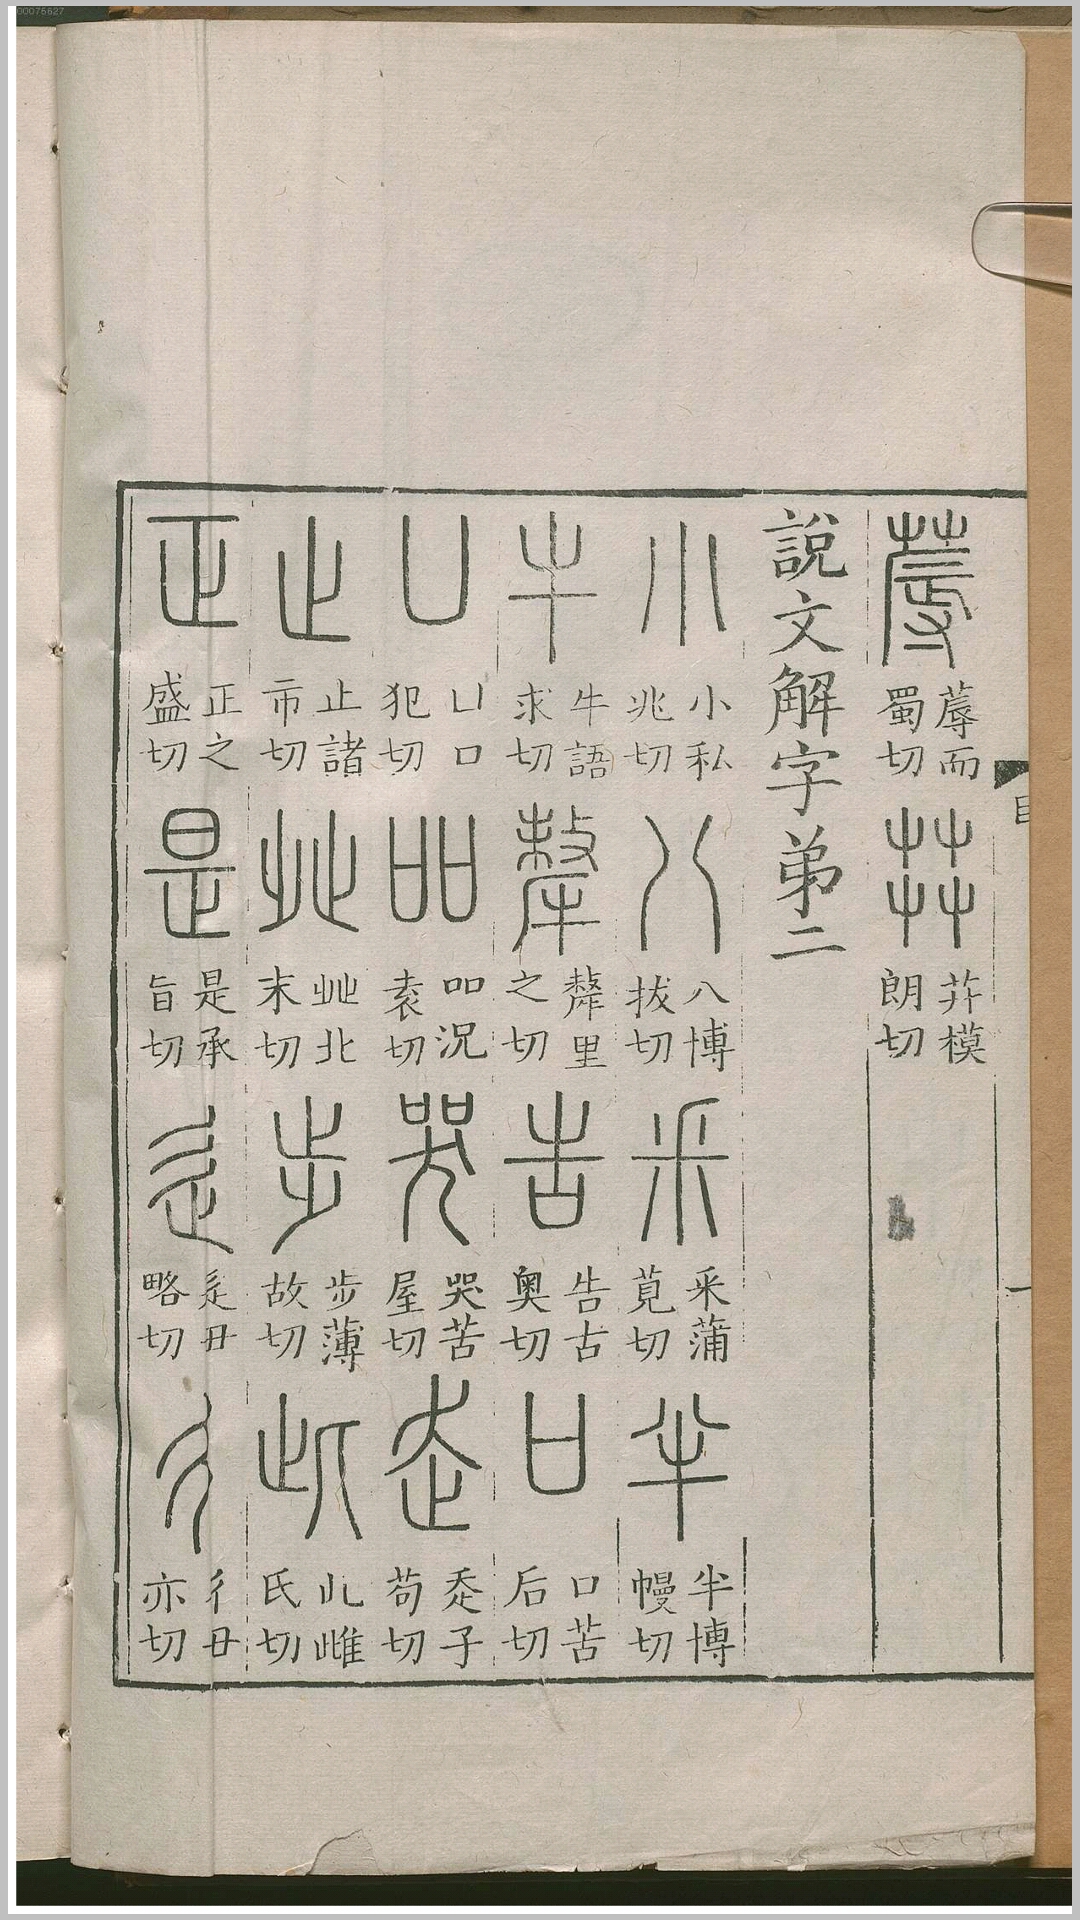 蓐 蓐而蜀切 茻 茻模朗切
說文解字弟二
小 小私兆切 八 八博拔切 釆 釆蒲莧切 半 半博幔切
牛 牛語求切 犛 犛里之切 告 告古奧切 口 口苦后切
凵 凵口犯切 吅 吅況袁切 哭 哭苦屋切 走 赱子苟切
止 止諸市切 癶 癶北末切 步 步薄故切 此 此雌氏切
正 正之盛切 是 是承旨切 辵 辵丑略切 彳 彳丑亦切
目
一
00075627